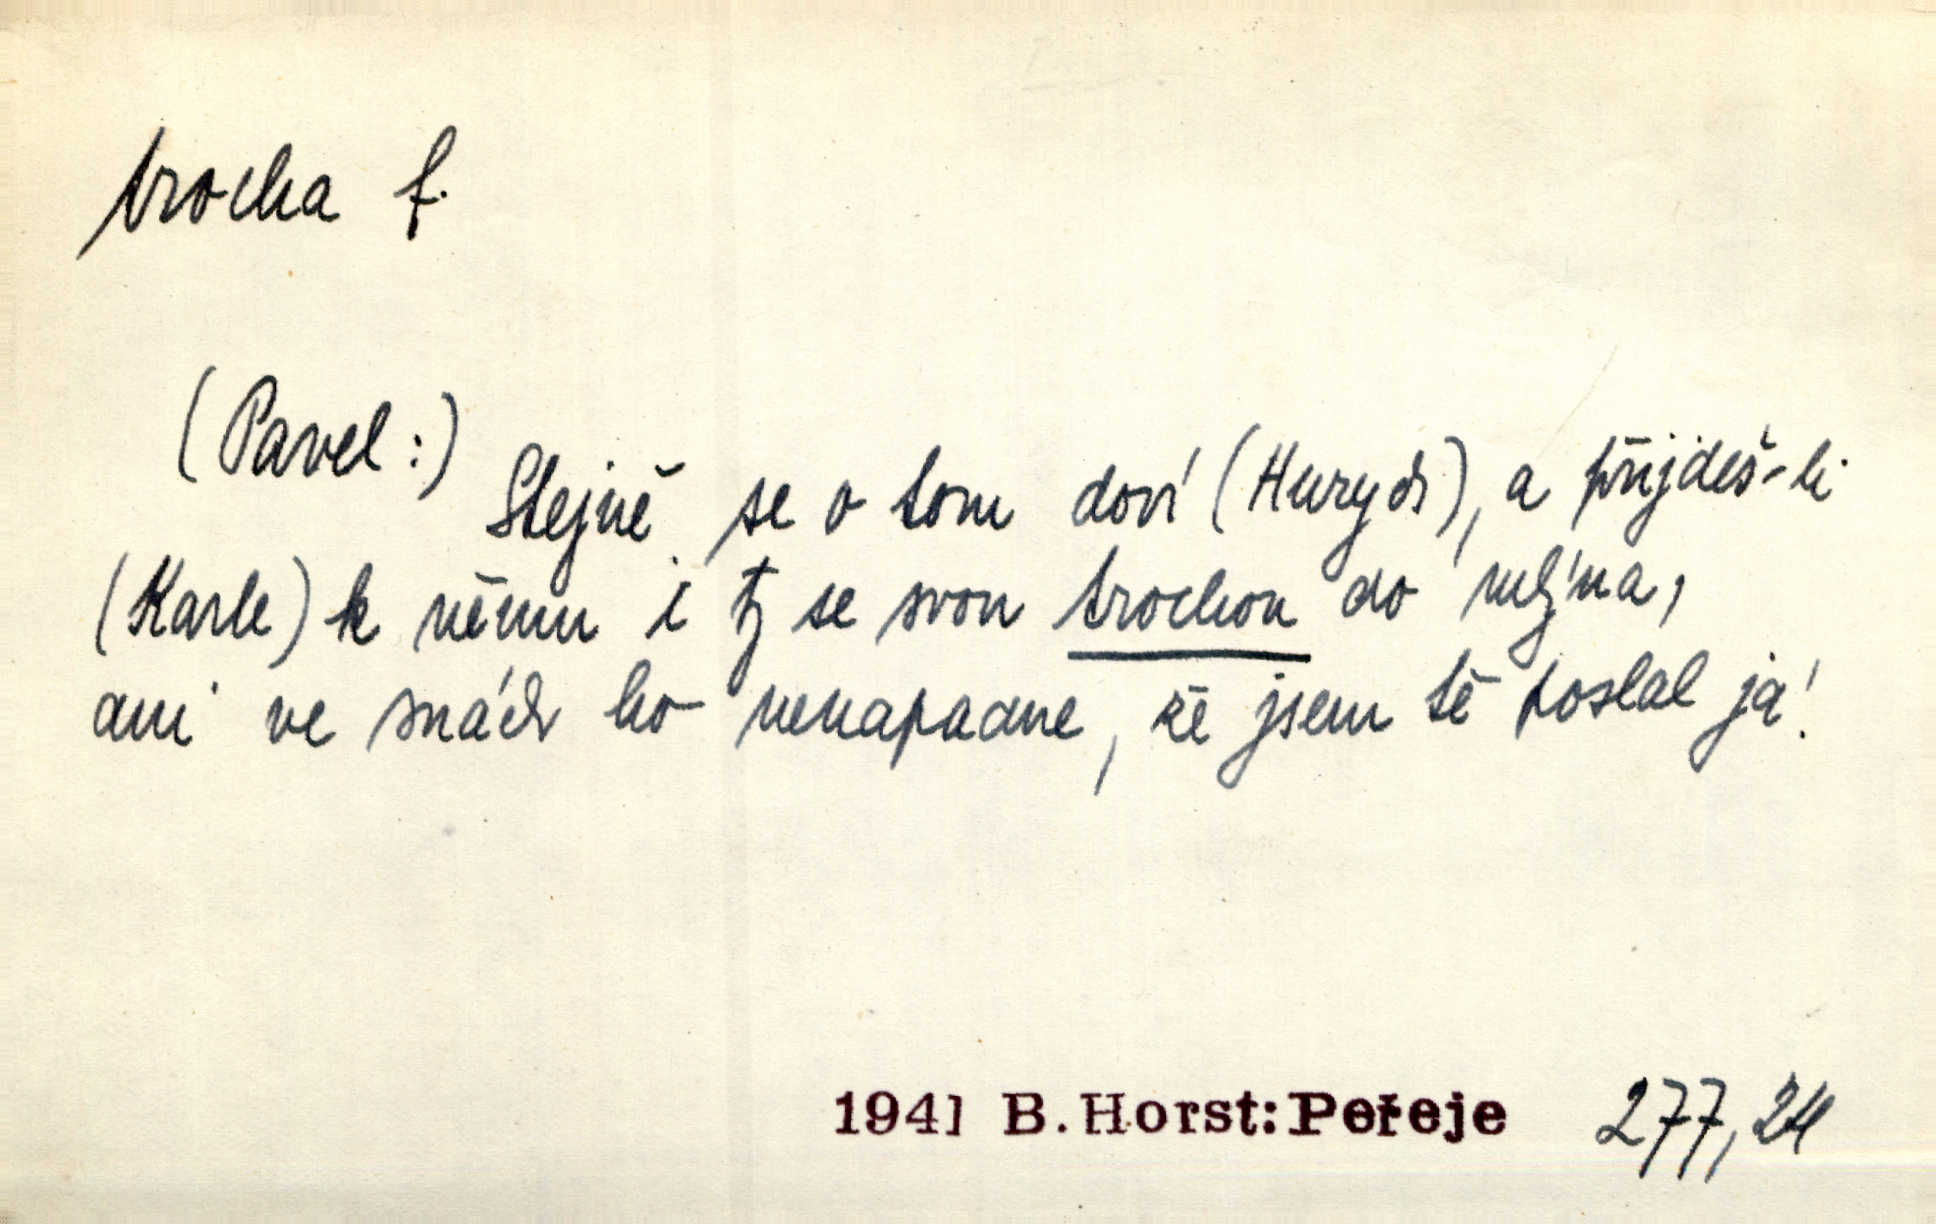 trocha f.
(Pavel:) Stejně se o tom doví (Hurych), a přijdeš-li
(Karle) k němu i ty se svou trochou do mlýna,
ani ve snách ho nenapadne, že jsem tě poslal já!
1941 B.Horst: Peřeje 277,24